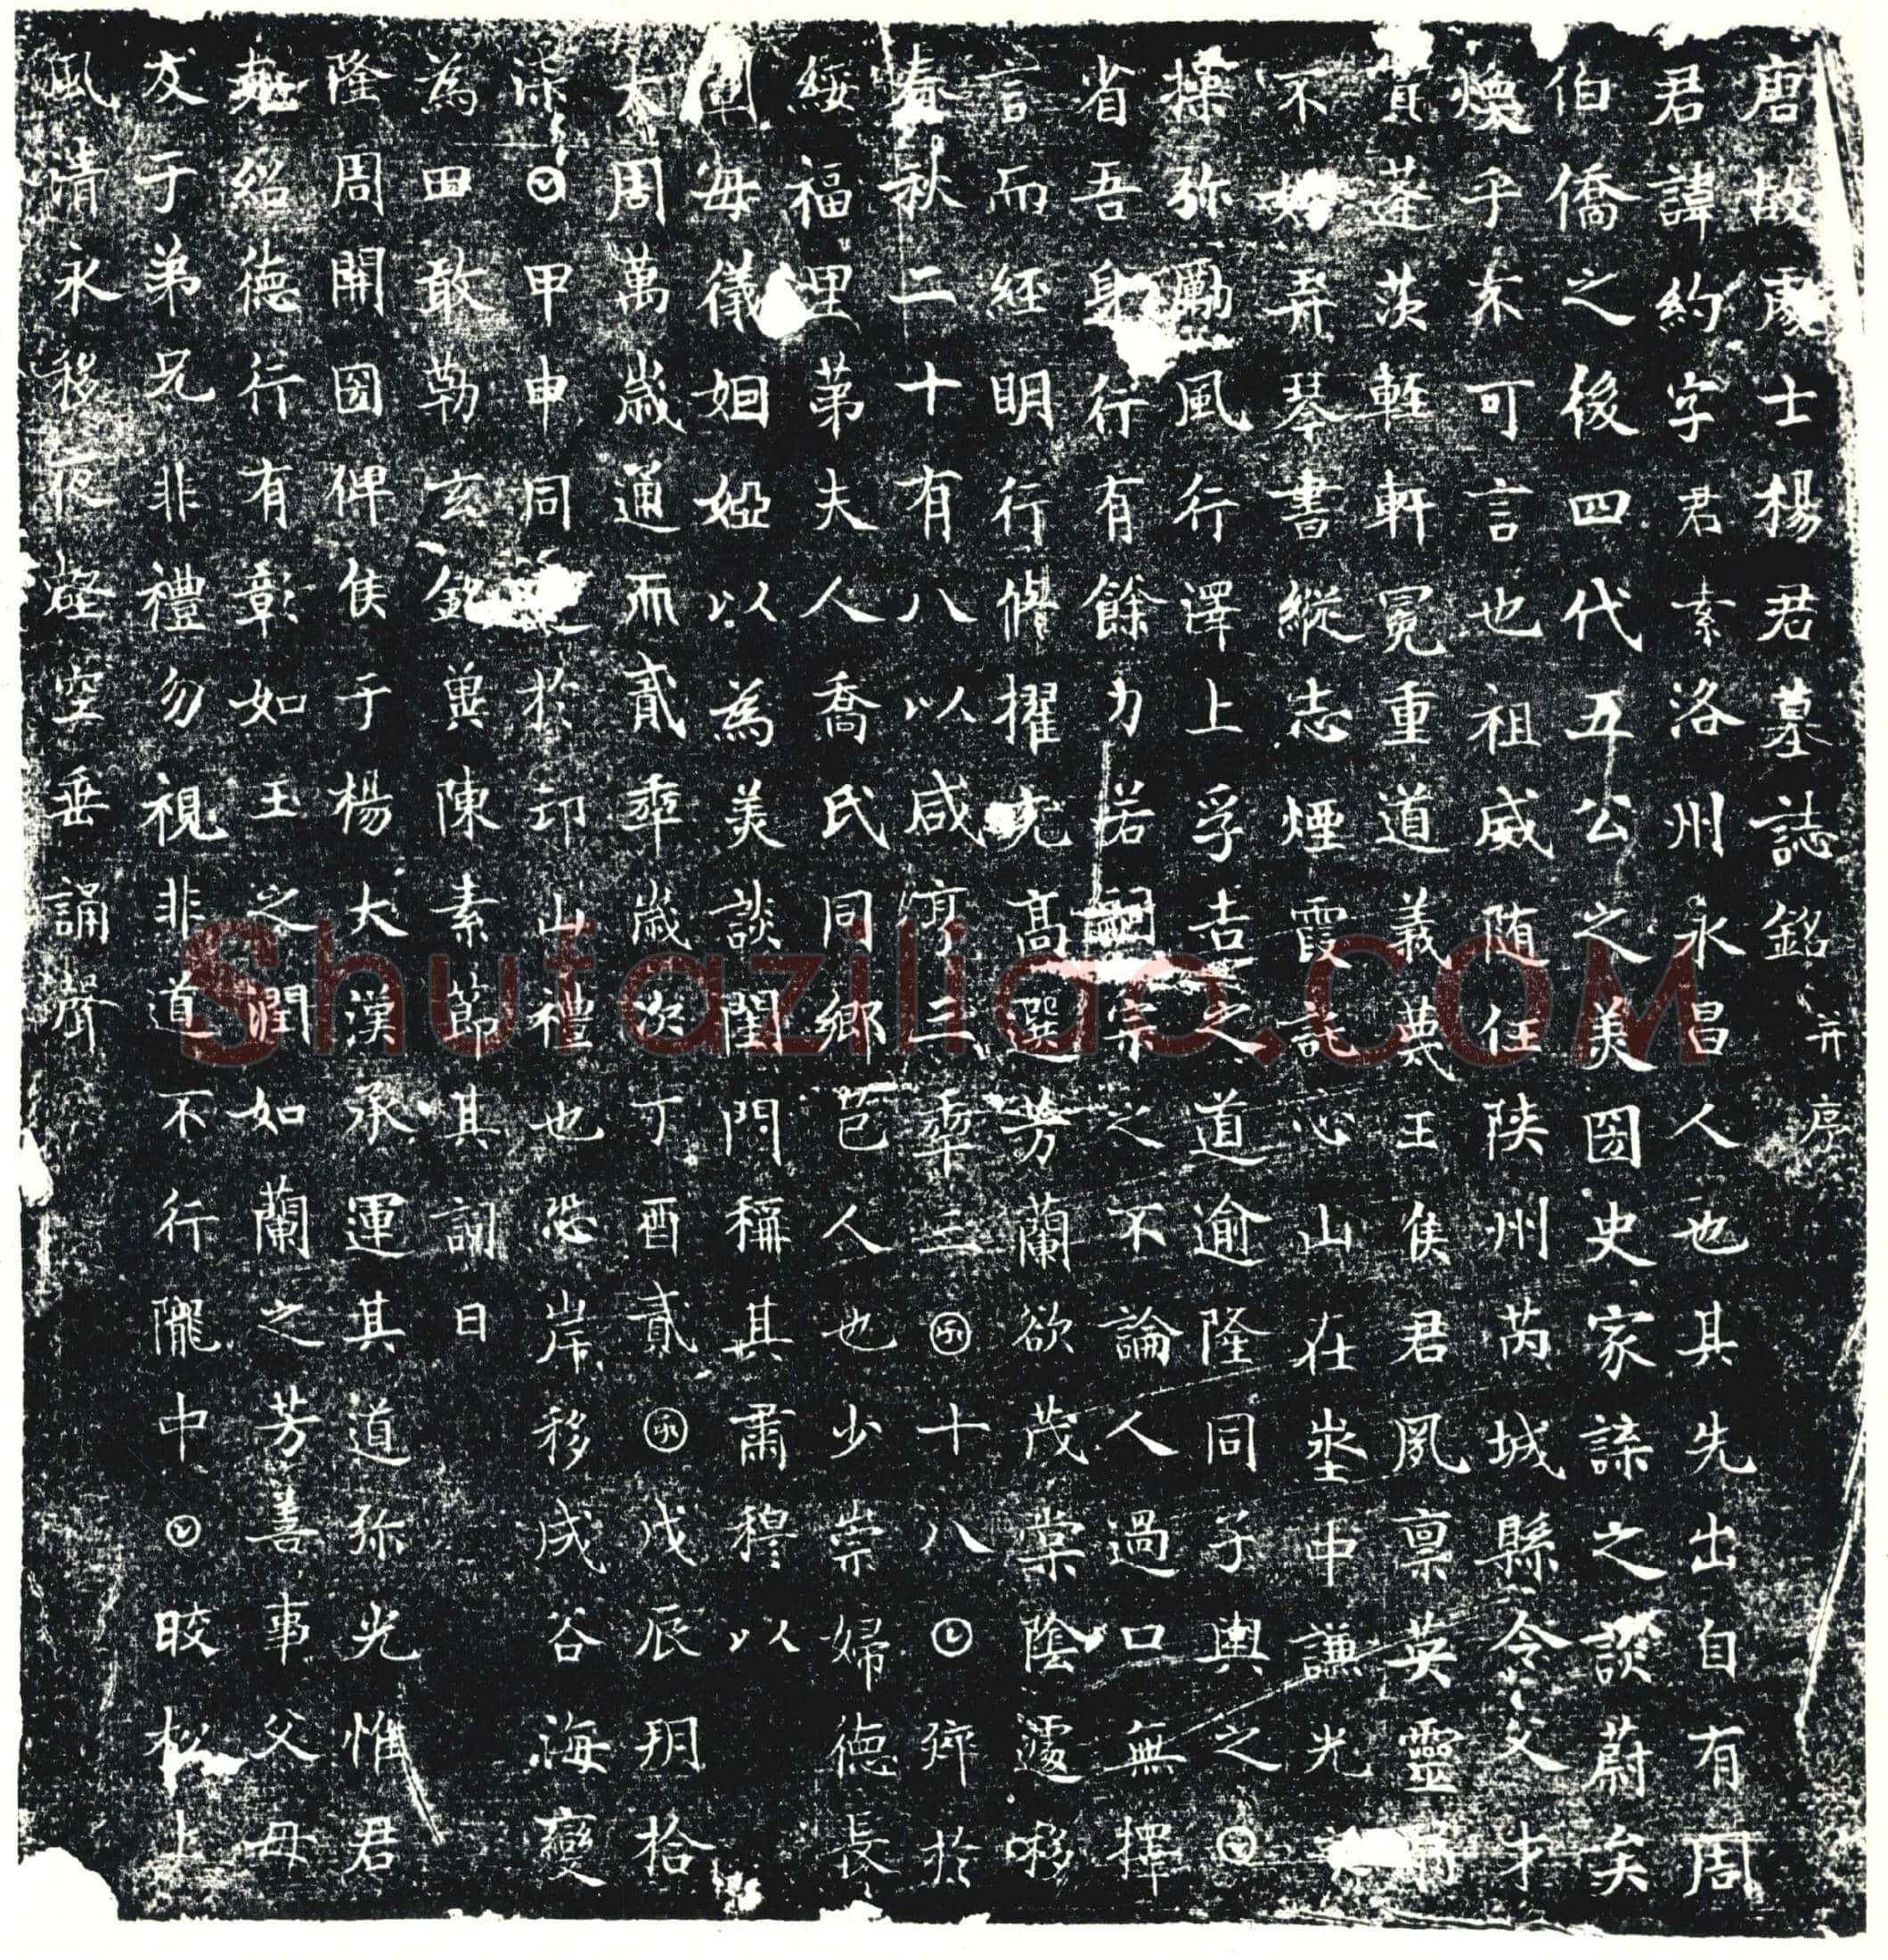 唐故處士楊君墓誌銘并序
君諱約字君素洛州永昌人也其先出自有周
伯僑之後四代五公之美圀史家諜之談蔚矣
煥乎未可言也祖威随任陝州芮城縣令父才
蓬茨軽軒冕重道義典王侯君夙禀英靈
不好弄琴書縱志煙霞託心山在埊中謙光
操弥勵風行澤上孚吉之道逾隆同子輿之𡆠
省吾身行有餘力若嗣宗之不論人過口無擇
言而經明行脩擢尤高選芳蘭欲茂棠陰遽移
春秋二十有八以咸亨三𠡦二㋴十八𡆠卒於
綏福里第夫人喬氏同鄉邑人也少崇婦德長
闡母儀姻婭以為美談閨門稱其肅穆以
大周萬歲通𠀑貳𠡦歲次丁酉貳㋴戊辰玥拾
柒𡆠甲申同葬於邙山禮也恐岸移成谷海變
為田敢勒玄銘兾陳素節其詞曰
隆周開圀俾侯于楊大漢承運其道弥光惟君
克紹德行有章如玉之潤如蘭之芳善事父母
友于弟兄非禮勿視非道不行隴中𡆠晈松上
風清永移夜壑空垂誦聲
Shufaziliao.COM